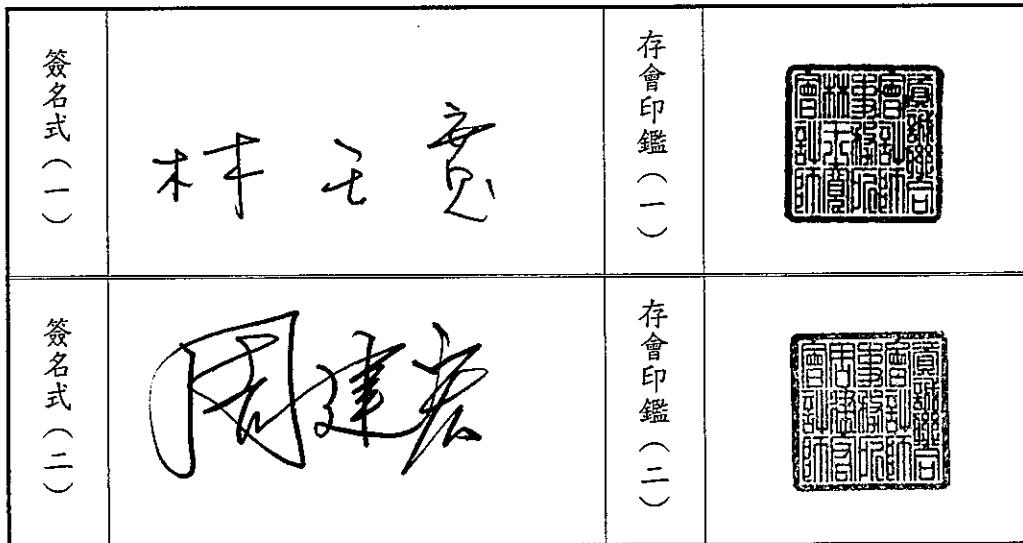 簽名式（一）
林玉寬
存會印鑑（一）
資誠聯合
會計師
事務所
林玉寬
會計師
簽名式（二）
周建宏
存會印鑑（二）
資誠聯合
會計師
事務所
周建宏
會計師